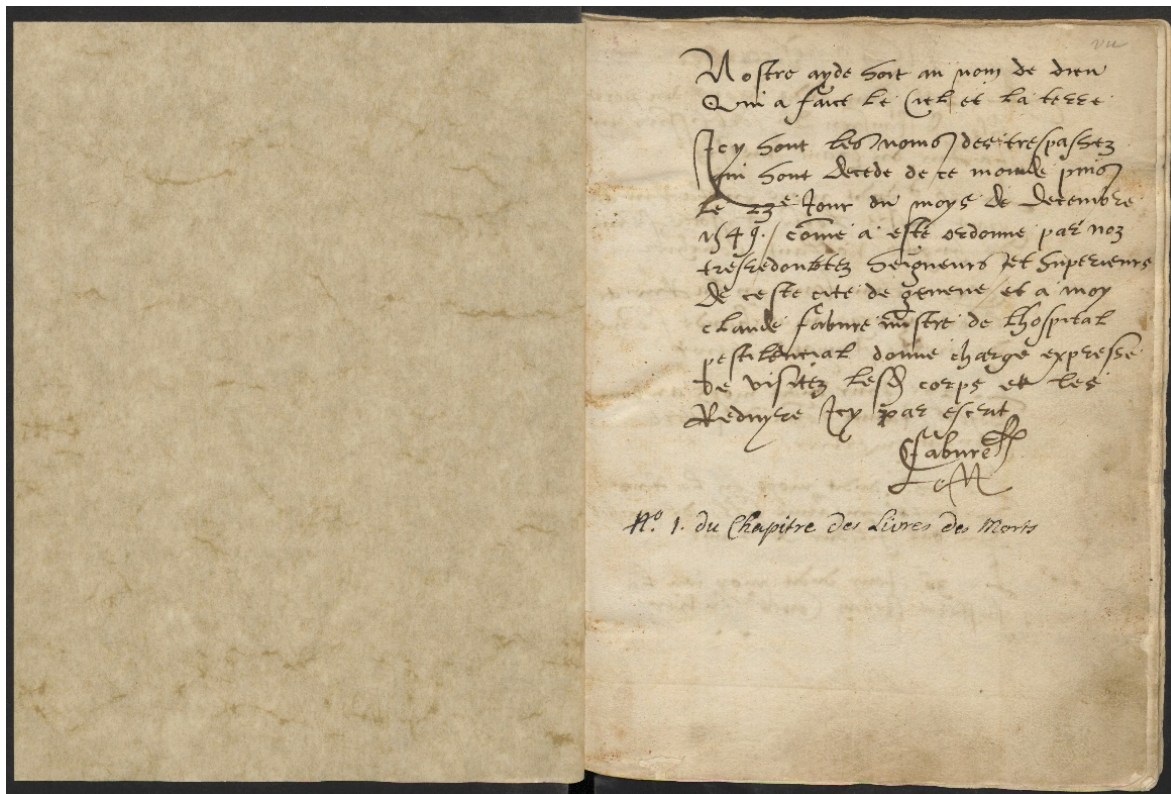 Nostre ayde soit au nom de dieu
Qui a faict le Ciel et la terre
Icy sont les noms des trespassez
Qui sont decede de ce monde puis
le 23e Jour du moys de decembre
1549. come a este ordonne par noz
tresredoubtez seigneurs et superieurs
de ceste cite de geneve et a moy
claude fabvre mistre de lhospital
pestilencial donne charge expresse
de visitez lesd corps et les
Reduyre Icy par escrit
fabvre
No. 1. du Chapitre des Livres des Morts